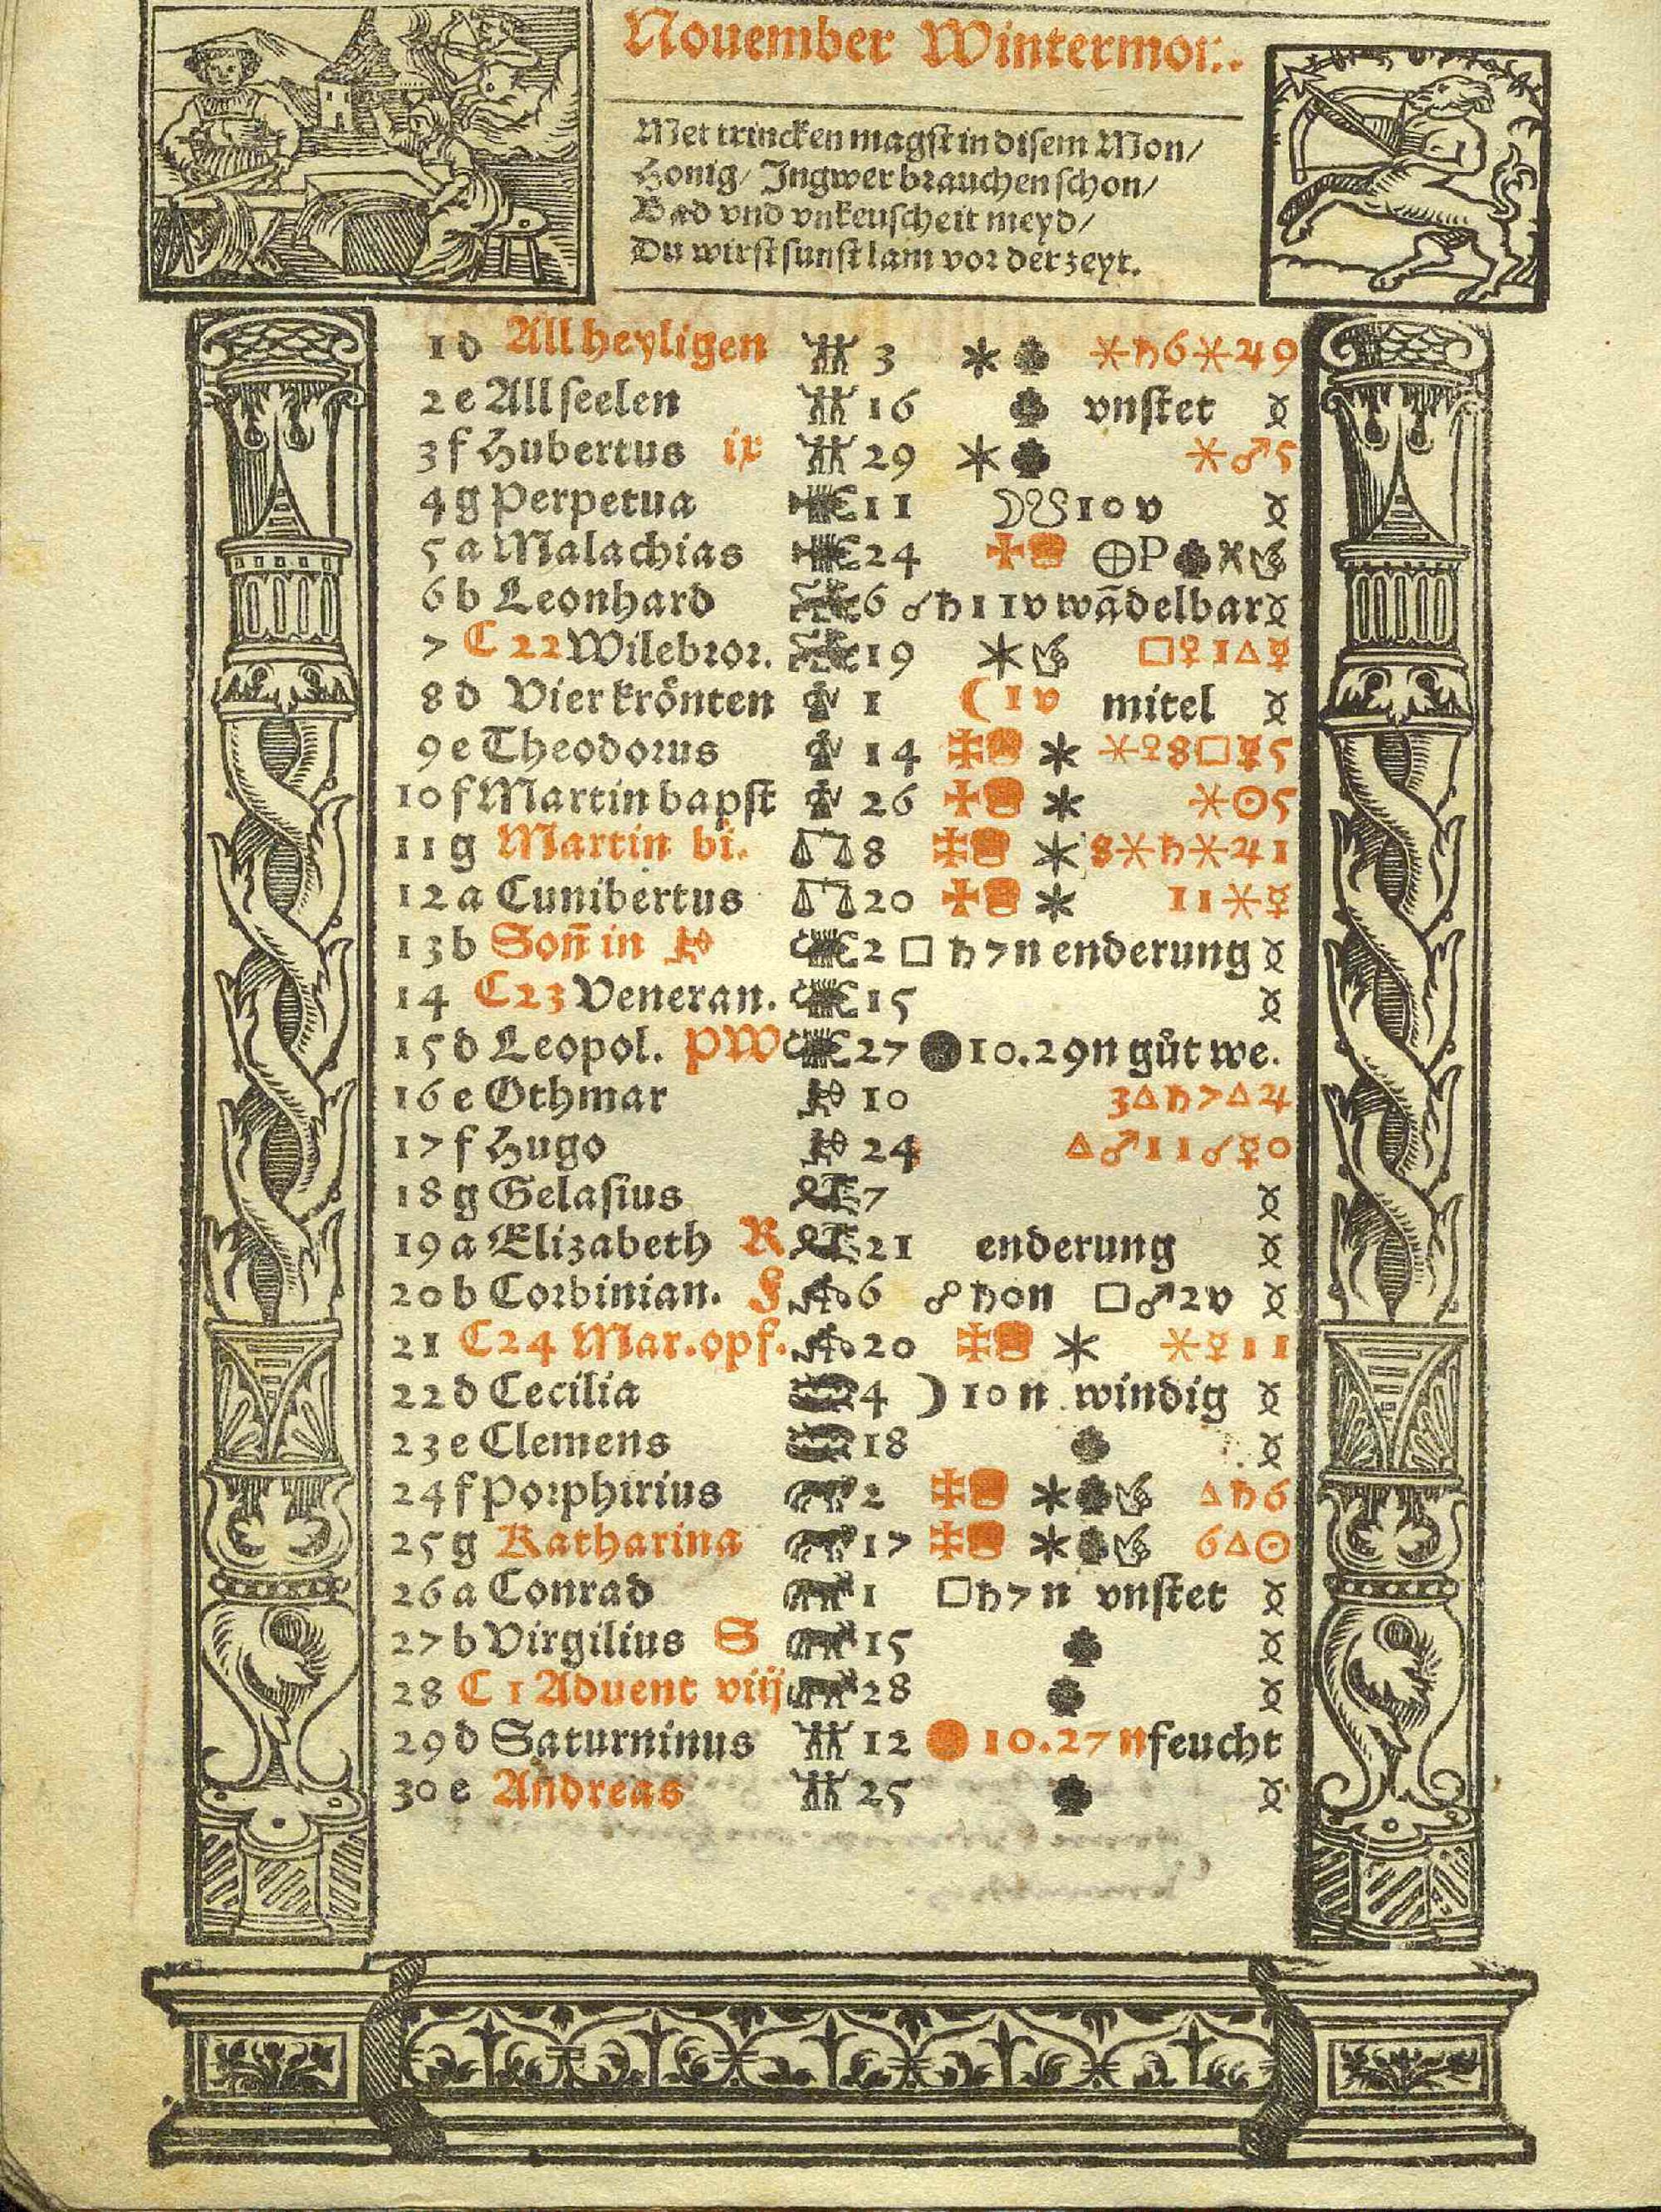 Nouember Wintermon.
Met trincken magst in disem Mon/
Honig/ Jngwer brauchen schon/
Bad vnd vnkeuscheit meyd/
Du wirst sunst lam vor der zeyt.
1 d All heyligen 3 ✶ ♣ ✶♄6✶♃9
2 e All seelen 16 ♣ vnstet
3 f Hubertus ix 29 ✶ ♣ ✶♂5
4 g Perpetua 11 ☽☋10v
5 a Malachias 24 ✚ ⊕P♣
6 b Leonhard 6 ☌♄11v wãdelbar
7 C 22 Wilebror. 19 ✶ □♀1△☿
8 d Vier krönten 1 (1v mitel
9 e Theodorus 14 ✠ ✶ ✶♀8□☿5
10 f Martin bapst 26 ✚ ✶ ✶⊙5
11 g Martin bi. 8 ✠ ✶ 8✶♄✶♃1
12 a Cunibertus 20 ✚ ✶ 11✶☿
13 b Soñ in ♐ 2 □ ♄7n enderung
14 C 23 Veneran. 15
15 d Leopol. PW 27 ●10.29n gůt we.
16 e Othmar 10 3△♄7△♃
17 f Hugo 24 △♂11☌☿0
18 g Gelasius 7
19 a Elizabeth R 21 enderung
20 b Corbinian. F 6 ☍♄0n □♂2v
21 C 24 Mar.opf. 20 ✠ ✶ ✶☿11
22 d Cecilia 4 )10n windig
23 e Clemens 18 ♣
24 f Porphirius 2 ✠ ✶♣ △♄6
25 g Katharina 17 ✠ ✶♣ 6△⊙
26 a Conrad 1 □♄7n vnstet
27 b Virgilius S 15 ♣
28 C 1 Aduent viij 28 ♣
29 d Saturninus 12 ●10.27n feucht
30 e Andreas 25 ♣